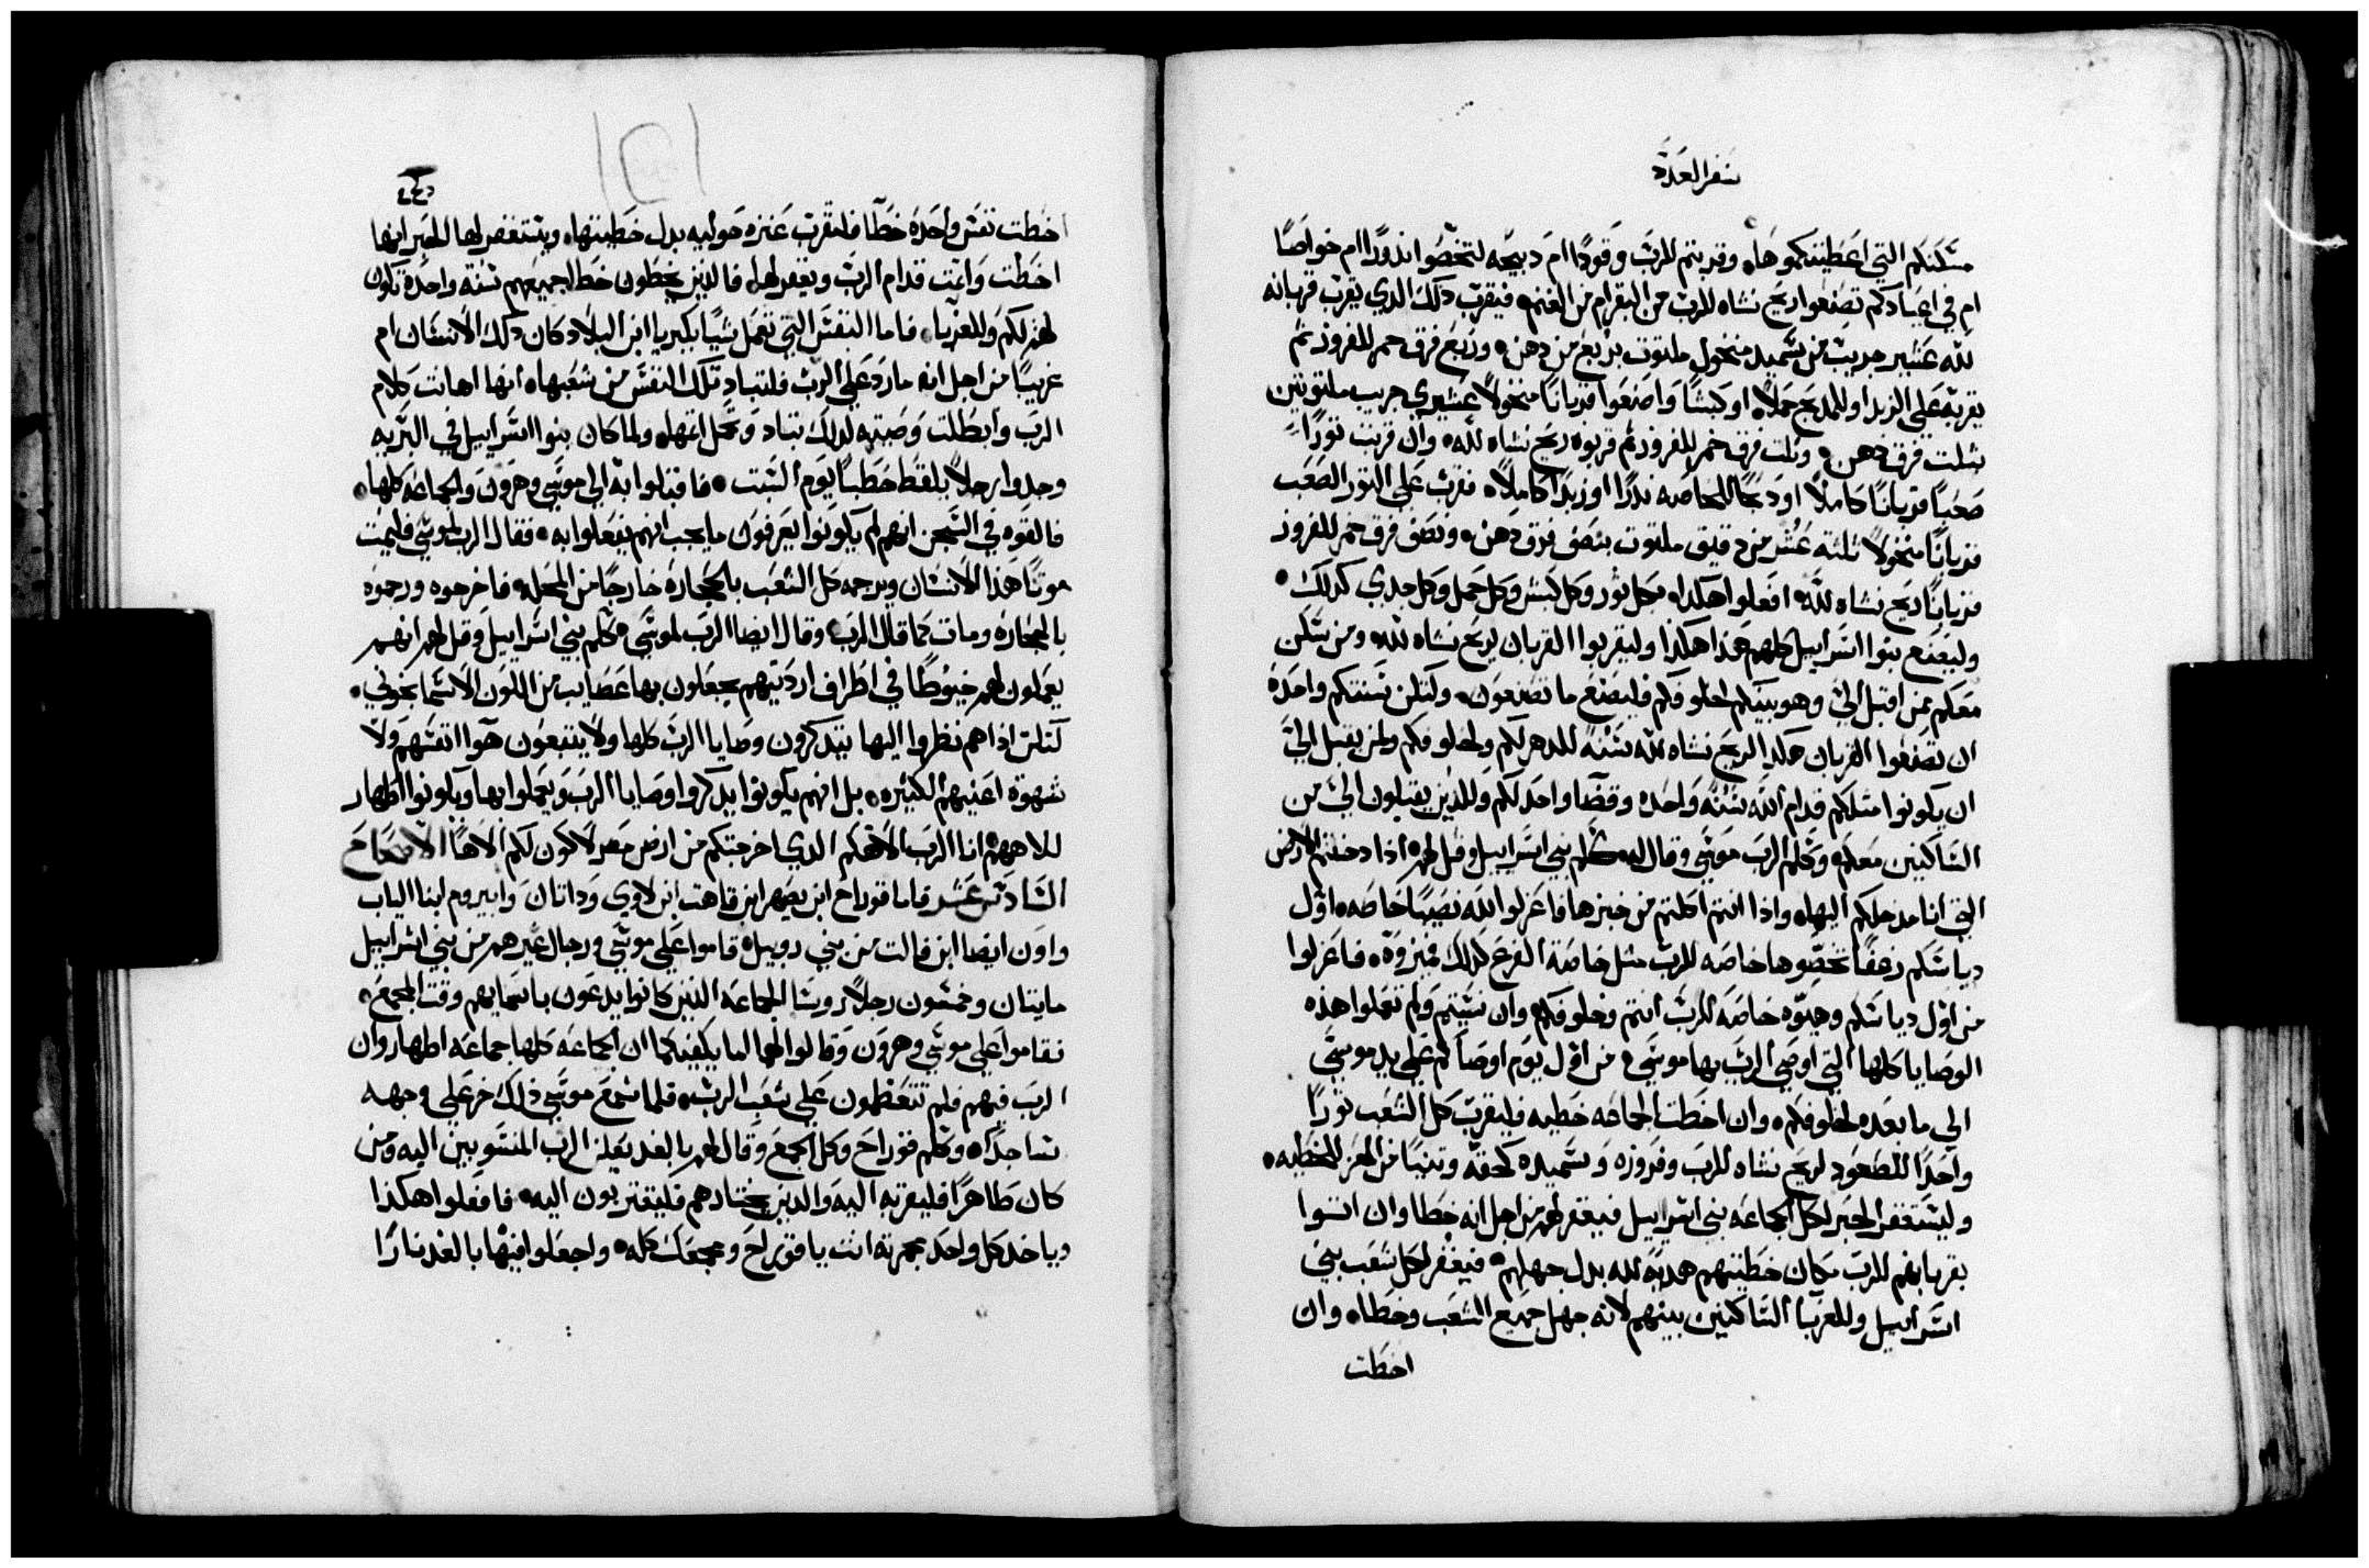 سفر العدد
مسكنكم التي اعطيتكموها، وقربتم للرب وقودا ام دبيحه لتخصوا ندورا ام خواصا
ام في اعيادكم تصنعوا ريح نشاه للرب من البقر ام من الغنم، فيقرب دلك الدي يقرب قربانه
لله عشير جريب من سميد منخول ملتوت بربع من دهن، وربع فرق خمر للفروز تم
يقربه على الزبد او للمدبح حملا، او كبشا واصنعوا قربانا منخولا عشيري جريب ملتوتين
بتلت فرق دهن، وتلت فرق خمر للفروز تم قربوه ريح نشاه لله، وان قربت تورا
صحبا قربانا كاملا او دبحا للخاصه ندرا او زبدا كاملا، فقرب على التور الصعب
قربانا منخولا تلته عشر من دقيق ملتوت بنصف فرق دهن، ونصف فرق خمر للفروز
قربانا ريح نشاه لله، افعلوا هكدا، بكل تور وكل كبش وكل حمل وكل جدي كدلك
وليصنع بنوا اسراييل كلهم هدا هكدا وليقربوا القربان لريح نشاه لله، ومن سكن
معكم ممن اقبل الي وهو بينكم احلوفكم فليصنع ما تصنعون، ولتكن سنتكم واحده
ان تصنعوا القربان هكدا لريح نشاه لله سنه للدهر لكم ولخلوفكم ولمن يقبل الي
ان يكونوا متلكم قدام الله سنه واحده وقضا واحد لكم وللدين يقبلون الي من
الساكنين معكم، وكلم الرب موسى وقال له، كلم بني اسراييل وقل لهم، ادا دخلتم الارض
التي انا مدخلكم اليها، وادا انتم اكلتم من خبزها فاعزلوا لله نصيبا خاصه، اول
دياسكم زعفا تخصوها خاصه للرب متل خاصة الفرع كدلك تميزوه، فاعزلوا
من اول دياسكم وهبوه خاصه للرب انتم وخلوفكم، وان نسيتم ولم تعملوا هذه
الوصايا كلها التي اوصى الرب بها موسى، من اول يوم اوصاكم على يد موسى
الى ما بعده لخلوفكم، وان اخطت الجماعه خطيه فليقرب كل الشعب تورا
واحدا للصعود لريح نشاه للرب وفروزه وسميده كحقه وتيسا من المعز للخطيه،
وليستغفر الحبر لكل الجماعه بني اسراييل فيغفر لهم من اجل انه خطا وان اتسوا
بقربانهم للرب مكان خطيتهم هديه لله بدل جهلهم، فيغفر لكل شعب بني
اسراييل وللغربا الساكنين بينهم لانه جهل جميع الشعب وخطا، وان
اخطت
اخطت نفس واحده خطا فلتقرب عنزه حوليه بدل خطيتها، ويستغفر لها الحبر انها
اخطت واتمت قدام الرب ويغفر لها، فالدين يخطون خطا جميعهم سنة واحده تكون
لهم لكم وللغربا، فاما النفس التي تعمل شيا بكبريا ابن البلاد كان دلك الانسان ام
غريبا من اجل انه مارد على الرب فلتباد تلك النفس من شعبها، انها اهانت كلام
الرب وابطلت وصيته لدلك تباد وتحمل اتمها، ولما كان بنوا اسراييل في البريه
وجدوا رجلا يلقط حطبا يوم السبت، فاقبلوا به الى موسى وهرون والجماعه كلها،
فالقوه في السجن انهم لم يكونوا يعرفون ما يجب انهم يفعلوا به، فقال الرب لموسى فليميت
موتا هذا الانسان ويرجمه كل الشعب بالحجاره خارجا من المحله، فاخرجوه ورجموه
بالحجاره ومات كما قال الرب، وقال ايضا الرب لموسى، كلم بني اسراييل وقل لهم انهم
يعملون لهم خيوطا في اطراف ارديتهم يجعلون بها عصايب من اللون الاسمانجوني،
لكن ادا هم نظروا اليها يتدكرون وصايا الرب كلها ولا يتبعون هوا انفسهم ولا
شهوة اعينهم الكتيره، بل انهم يكونوا يدكروا وصايا الرب ويعملوا بها ويكونوا اطهار
للاههم، انا الرب الاهكم الدي اخرجتكم من ارض مصر لاكون لكم الاها الاصحاح
السادس عشر فاما قوراح ابن يصهر ابن قاهت ابن لاوي وداتان وابيروم ابنا الياب
واون ايضا ابن فالت من بني روبيل، قاموا على موسى ورجال غيرهم من بني اسراييل
مايتان وخمسون رجلا روسا الجماعه الدين كانوا يدعون باسمايهم وقت المجمع،
فقاموا على موسى وهرون وقالوا لهما اما يكفيكما ان الجماعه كلها جماعه اطهار وان
الرب فيهم فلم تتعظمون على شعب الرب، فلما سمع موسى ذلك خر على وجهه
ساجدا، وكلم قوراح وكل الجمع وقال لهم بالغد يعلن الرب المنسوبين اليه ومن
كان طاهرا فليقربه اليه والدين يختارهم فليتقربون اليه، فافعلوا هكذا
وياخد كل واحد مجمرته انت يا قوراح ومجمعك كله، واجعلوا فيها بالغد نارا